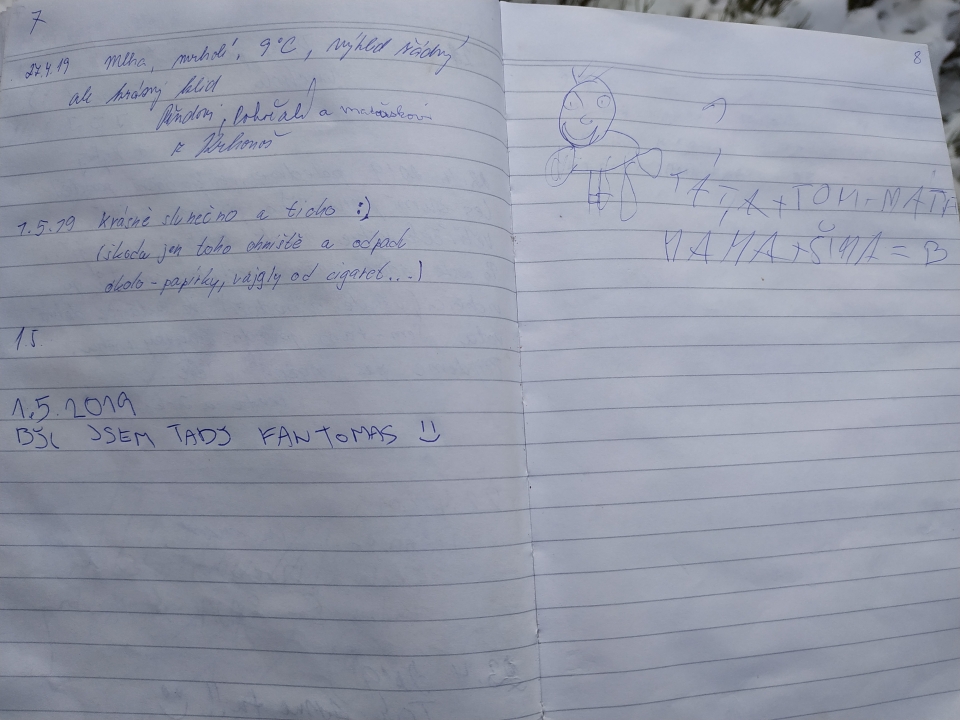 7
27.4.19 Mlha, mrholí, 9°C, výhled žádný
ale krásný klid
a
z Krkonoš
1.5.19 krásně slunečno a ticho :)
(škoda jen toho ohniště a odpadu
okolo - papírky, vajgly od cigaret...)
1.5.
1.5.2019
BYL JSEM TADY FANTOMAS
8
TÁTA + TOM
MAMA + = B